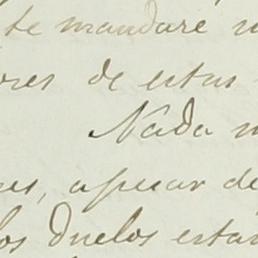 te mandaré
ores de estas
Nada
apesar de
los Duelos estan